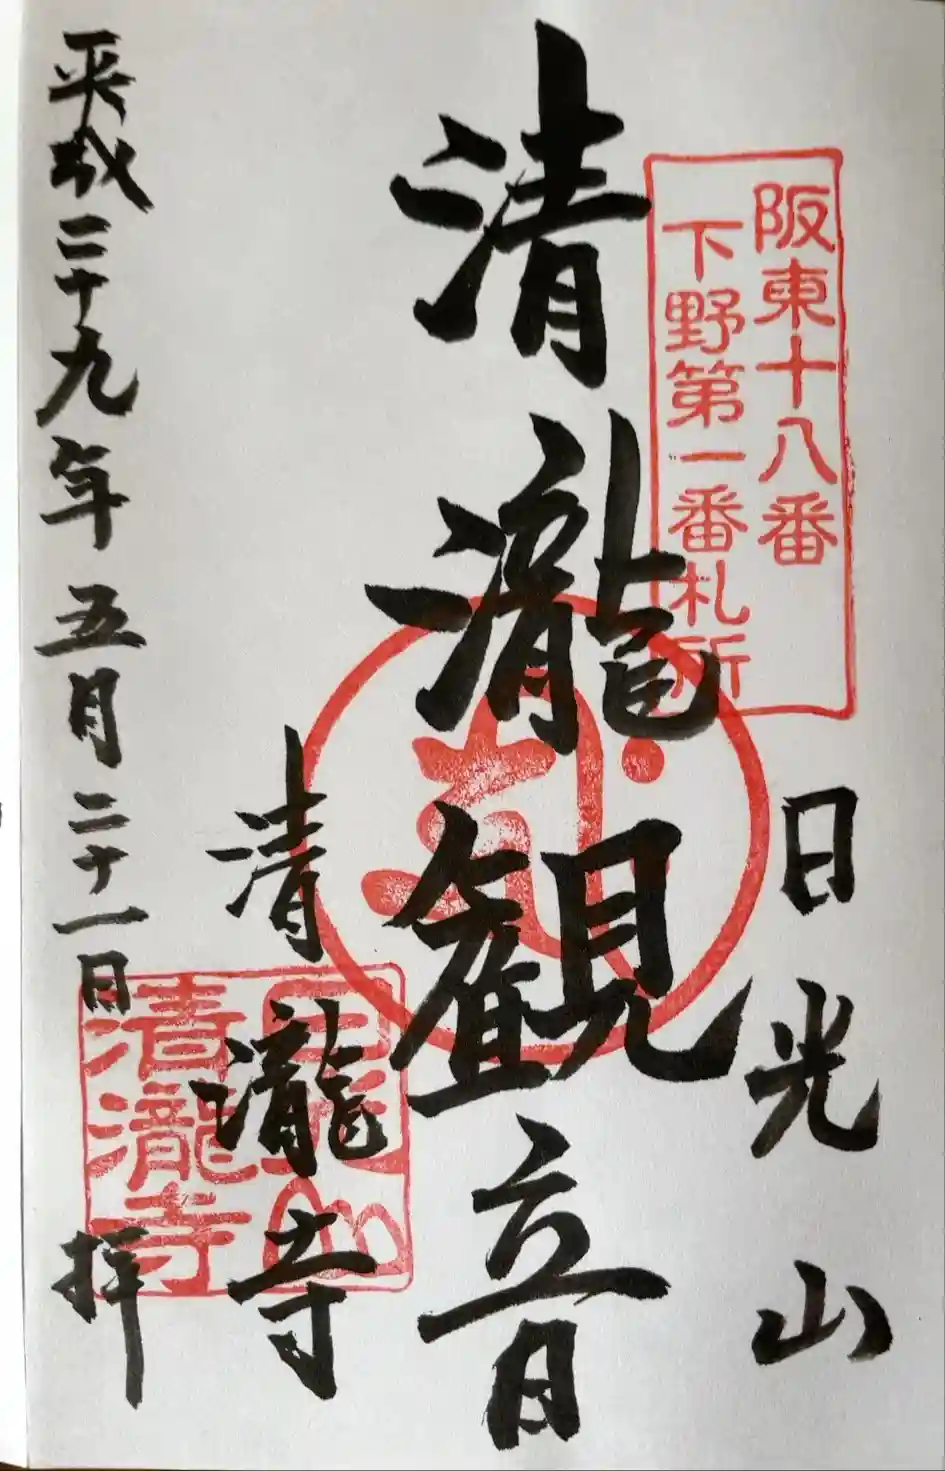 阪東十八番
下野第一番札所
日光山
清瀧観音
清瀧寺
日光山
清瀧寺
平成二十九年五月二十一日
拝